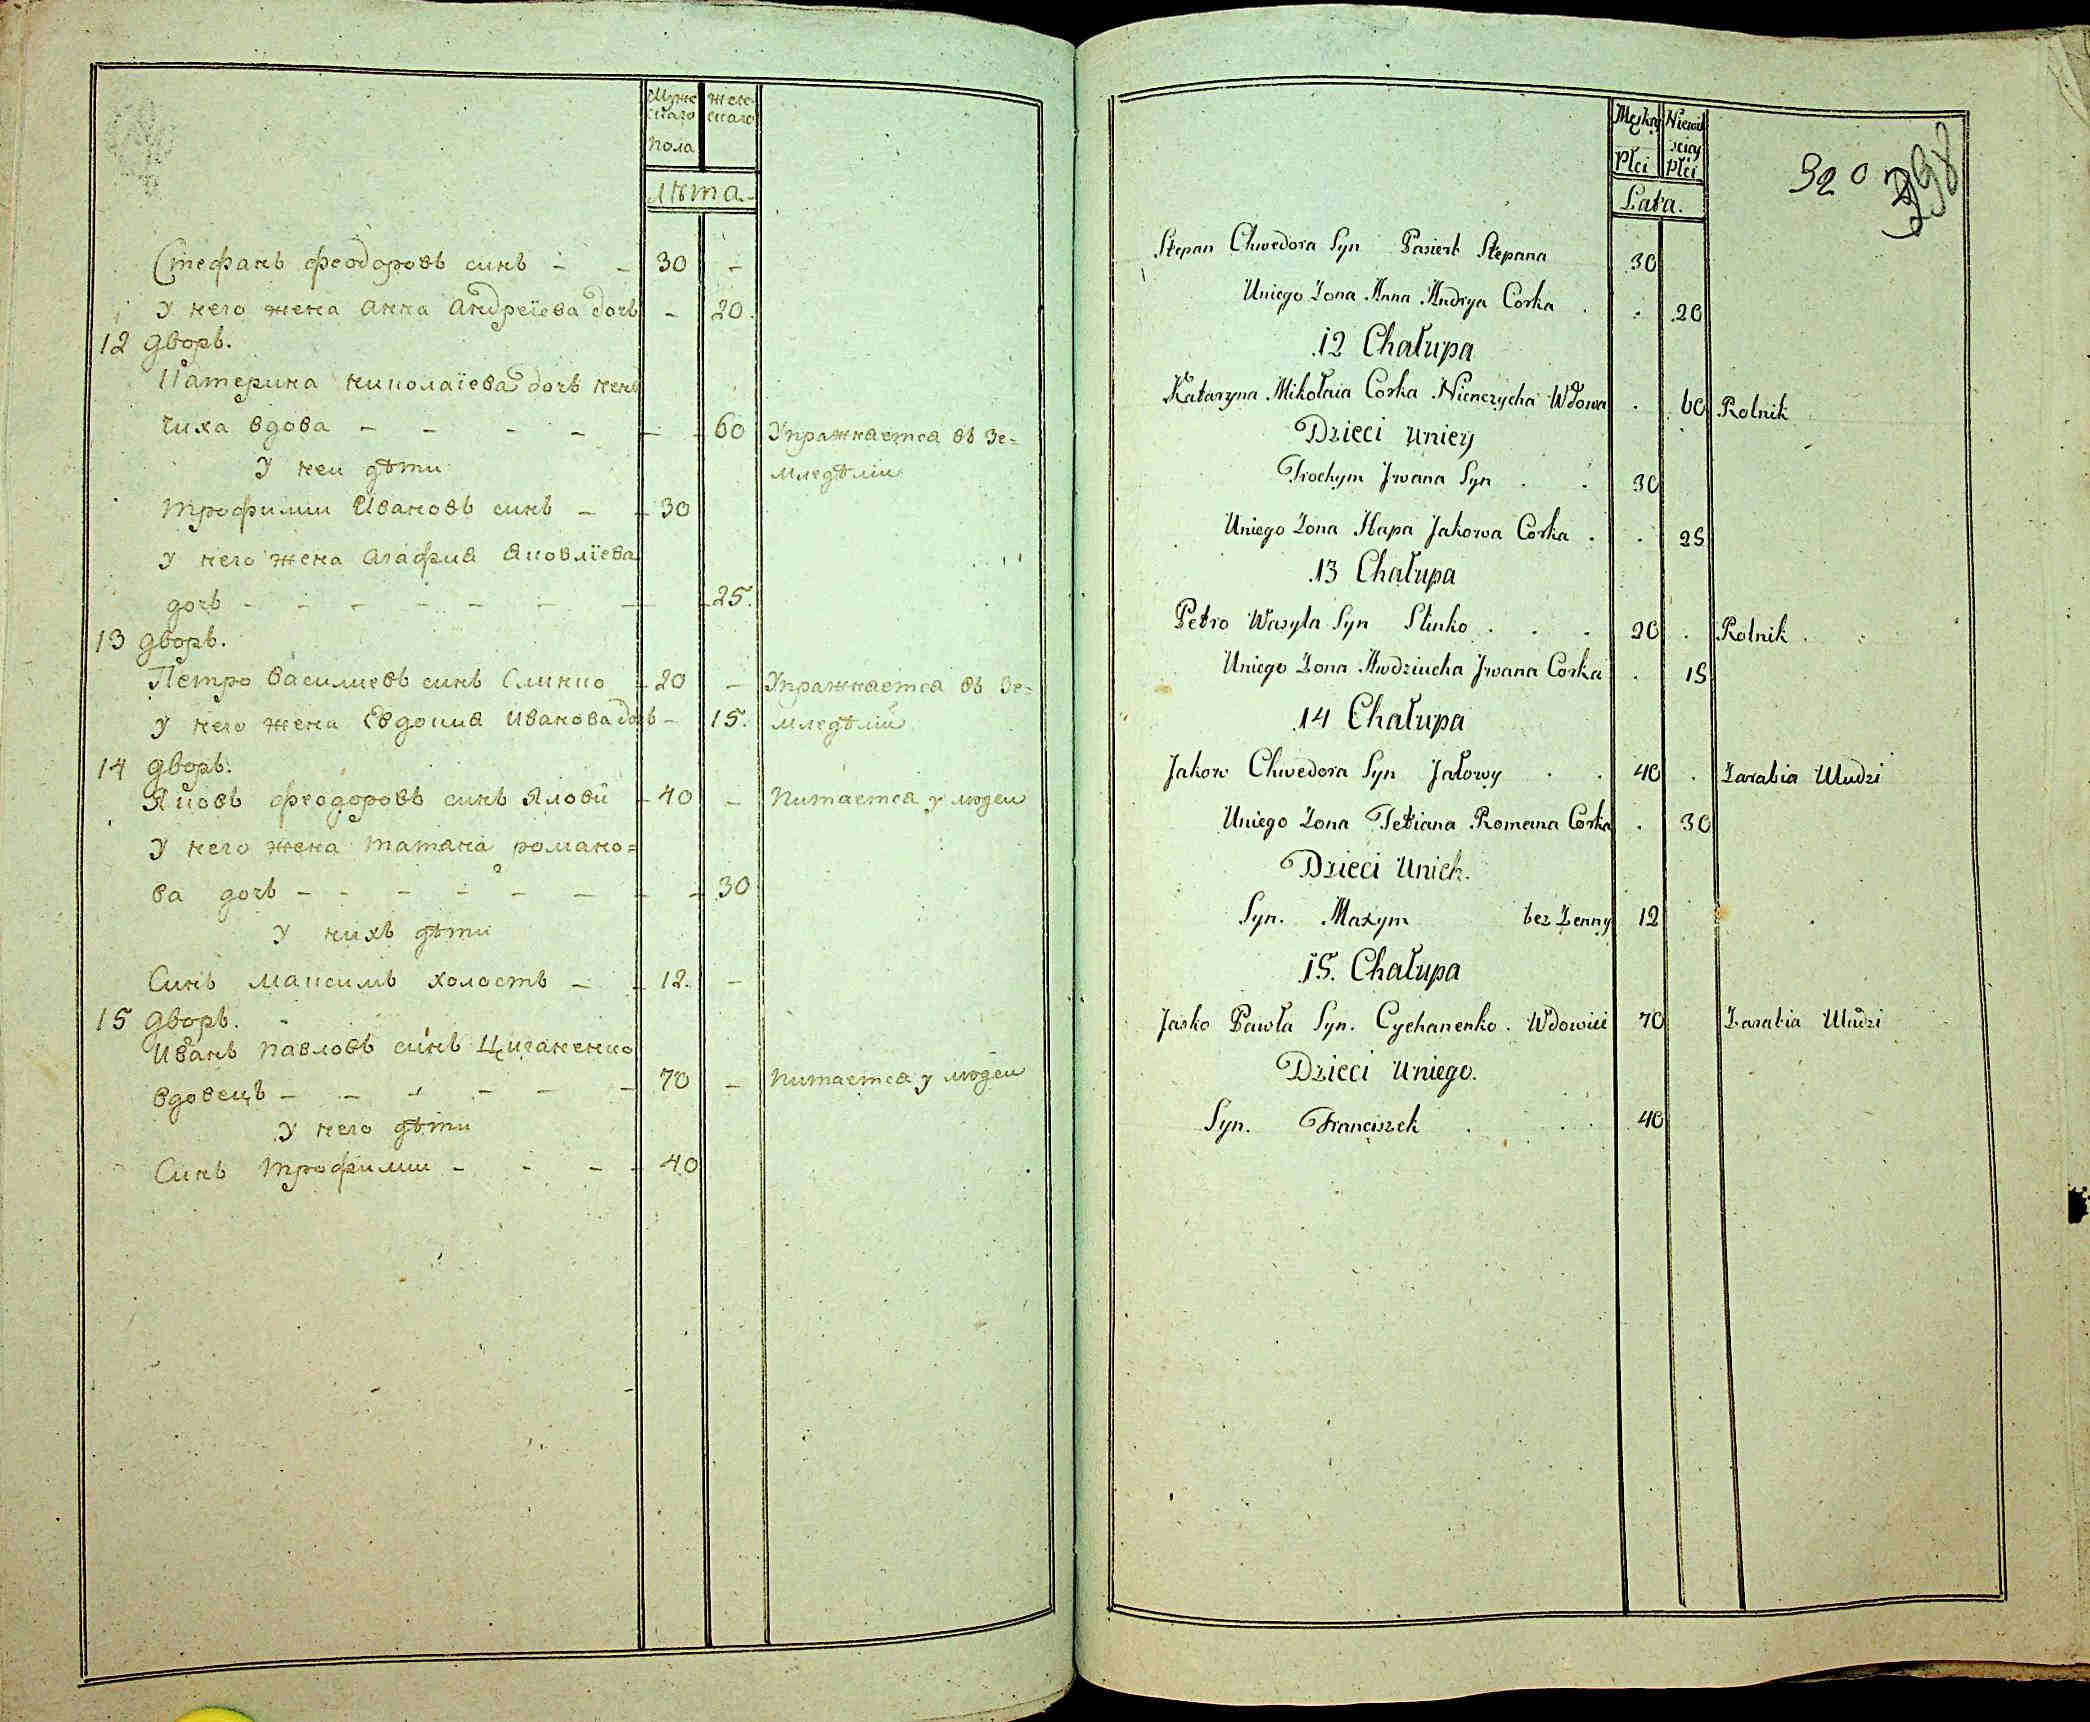 Мужескаго Пола
женскаго
Лѣта
Стефанъ феодоровъ синъ 30 -
У него жена Анна Андреїева дочъ - 20
12 дворъ.
Катерина николаїева дочъ нен
чиха вдова 60 Упражнается въ зе=
У неи дѣти мледѣлїи
трофимии Ивановъ синъ 30
У него жена Агафиа Яковлїева
дочъ 25.
13 дворъ.
Петро василиевъ синъ Слинко 20 - Упражнается въ зе=
У него жена Евдокиа Иванова дочъ - 15. мледѣлїи
14 дворъ.
Яковъ феодоровъ синъ Яловїи 40 - питается у людеи
У него жена татана романо=
ва дочъ 30
У нихъ дѣти
Синъ максимъ холостъ 12. -
15 дворъ.
Иванъ павловъ синъ Циганенко
вдовецъ 70 - питается у людеи
У него дѣти
Синъ трофимии 40
Męzkey Płci
Niewiescey Płci
Lata.
320
398
Stepan Chwedora Syn Pasierb Stepana 30
Uniego Zona Anna Andrya Corka . 20
12 Chałupa
Katarzyna Mikołaia Corka Nienczycha Wdowa . 60 Rolnik
Dzieci Uniey
Trochym Jwana Syn 30
Uniego Zona Hapa Jakowa Corka . 25
13 Chałupa
Petro Wasyla Syn Slinko 20 . Rolnik
Uniego Zona Awdziucha Jwana Corka . 15
14 Chałupa
Jakow Chwedora Syn Jałowy 40 . Zarabia Uludzi
Uniego Zona Tetiana Romana Corka . 30
Dzieci Unich.
Syn. Maxym bez Zenny 12
15. Chałupa
Jasko Pawła Syn. Cychanenko. Wdowiec 70 Zarabia Uludzi
Dzieci Uniego.
Syn. Franciszek 40